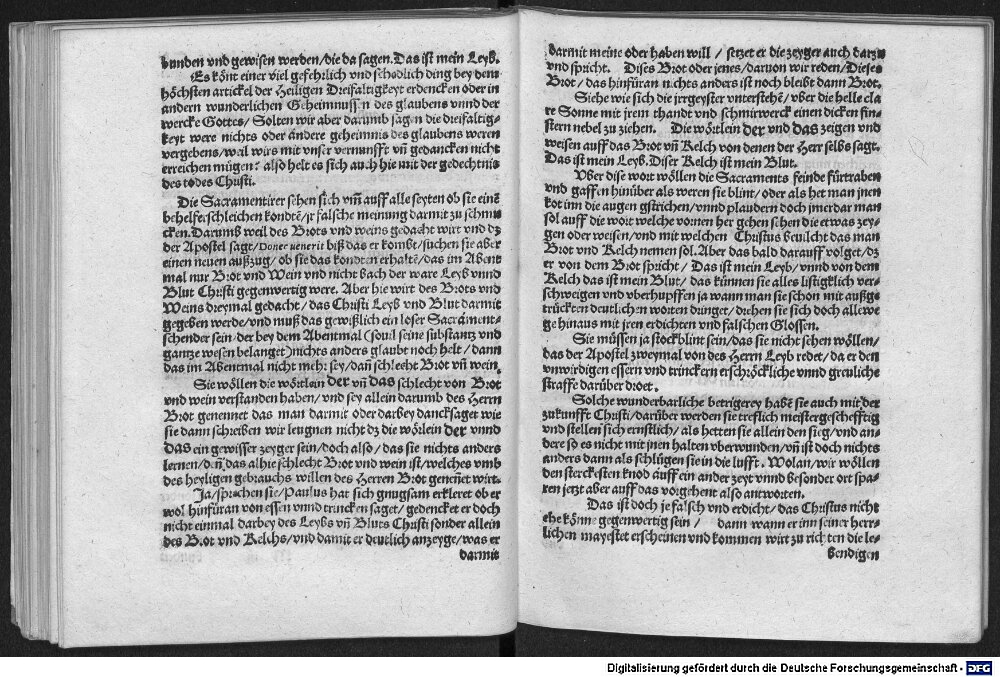 bunden vnd gewisen werden/die da sagen. Das ist mein Leyb.
Es könt einer viel gefehrlich vnd schedlich ding bey dem
höchsten artickel der Heiligen Dreifaltigkeyt erdencken oder in
andern wunderlichen Geheimnussen des glaubens vnnd der
wercke Gottes/ Solten wir aber darumb sagen die dreifaltig-
keyt were nichts oder andere geheimnis des glaubens weren
vergebens/weil wirs mit vnser vernunfft vñ gedancken nicht
erreichen mügen? also helt es sich auch hie mit der gedechtnis
des todes Christi.
Die Sacramentirer sehen sich vm̃ auff alle seyten ob sie einẽ
behelff erschleichen kondtẽ/jr falsche meinung darmit zu schmu
cken. Darumb weil des Brots vnd weins gedacht wirt vnd dz
der Apostel sagt/Donec uenerit biß das er kombt/suchen sie aber
einen neuen außzug/ ob sie das kondten erhaltẽ/das im Abent
mal nur Brot vnd Wein vnd nicht auch der ware Leyb vnnd
Blut Christi gegenwertig were. Aber hie wirt des Brots vnd
Weins dreymal gedacht/das Christi Leyb vnd Blut darmit
gegeben werde/vnd muß das gewißlich ein loser Sacrament-
schender sein/der bey dem Abentmal (souil seine substantz vnd
gantze wesen belanget) nichts anders glaubt noch helt/ dann
das im Abentmal nicht mehr sey/dañ schlecht Brot vñ wein.
Sie wöllen die wörtlein der vñ das schlecht von Brot
vnd wein verstanden haben/ vnd sey allein darumb des Herrn
Brot genennet das man darmit oder darbey dancksaget wie
sie dann schreiben wir leugnen nicht dz die wörlein der vnnd
das ein gewisser zeyger sein/doch also/ das sie nichts anders
lernen/deñ das alhie schlecht Brot vnd wein ist/welches vmb
des heyligen gebrauchs willen des Herren Brot genẽnet wirt.
Ja/sprachen sie/Paulus hat sich gnugsam erkleret ob er
wol hinfüran von essen vnnd trincken saget/gedencket er doch
nicht einmal darbey des Leybs vñ Bluts Christi sonder allein
des Brot vnd Kelchs/vnd damit er deutlich anzeyge/was er
darmit
darmit meine oder haben will / setzet er die zeyger auch darzu
vnd spricht. Dises Brot oder jenes/daruon wir reden/Dieses
Brot/das hinfüran nichts anders ist noch bleibt dann Brot.
Siehe wie sich die jrrgeyster vnterstehẽ/vber die helle cla
re Sonne mit jrem thandt vnd schmirwerck einen dicken fin-
stern nebel zu ziehen. Die wörtlein der vnd das zeigen vnd
weisen auff das Brot vñ Kelch von denen der Herr selbs sagt.
Das ist mein Leyb. Diser Kelch ist mein Blut.
Vber dise wort wöllen die Sacraments feinde fürtraben
vnd gaffen hinüber als weren sie blint/oder als het man jnen
kot inn die augen gstrichen/vnnd plaudern doch jmerdar man
sol auff die wort welche vornen her gehen sehen die etwas zey-
gen oder weisen/vnd mit welchen Christus beuilcht das man
Brot vnd Kelch nemen sol. Aber das bald darauff volget/dz
er von dem Brot spricht/ Das ist mein Leyb/vnnd von dem
Kelch das ist mein Blut/ das künnen sie alles listigklich ver-
schweigen vnd vberhupffen ja wann man sie schon mit außge
trückten deutlichen worten dringet/drehen sie sich doch allewe
ge hinaus mit jren erdichten vnd falschen Glossen.
Sie müssen ja stockblint sein/das sie nicht sehen wöllen/
das der Apostel zweymal von des Herrn Leyb redet/da er den
vnwirdigen essern vnd trinckern erschröckliche vnnd greuliche
straffe darüber droet.
Solche wunderbarliche betrigerey habẽ sie auch mit der
zukunfft Christi/darüber werden sie treflich meistergescheff­tig
vnd stellen sich ernstlich/als hetten sie allein den sieg/vnd an-
dere so es nicht mit jnen halten vberwunden/vñ ist doch nichts
anders dann als schlügen sie in die lufft. Wolan/wir wöllen
den sterckesten knod auff ein ander zeyt vnnd besonder ort spa-
ren jetzt aber auff das vorgehent also antworten.
Das ist doch je falsch vnd erdicht/das Christus nicht
ehe könne gegenwertig sein/ dann wann er inn seiner herr-
lichen mayestet erscheinen vnd kommen wirt zu richten die le-
bendigen
Digitalisierung gefördert durch die Deutsche Forschungsgemeinschaft - DFG